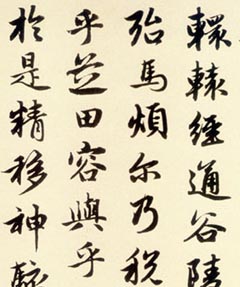 轘轅經通谷陵
殆馬煩尔乃税
乎芝田容與乎
於是精移神駭